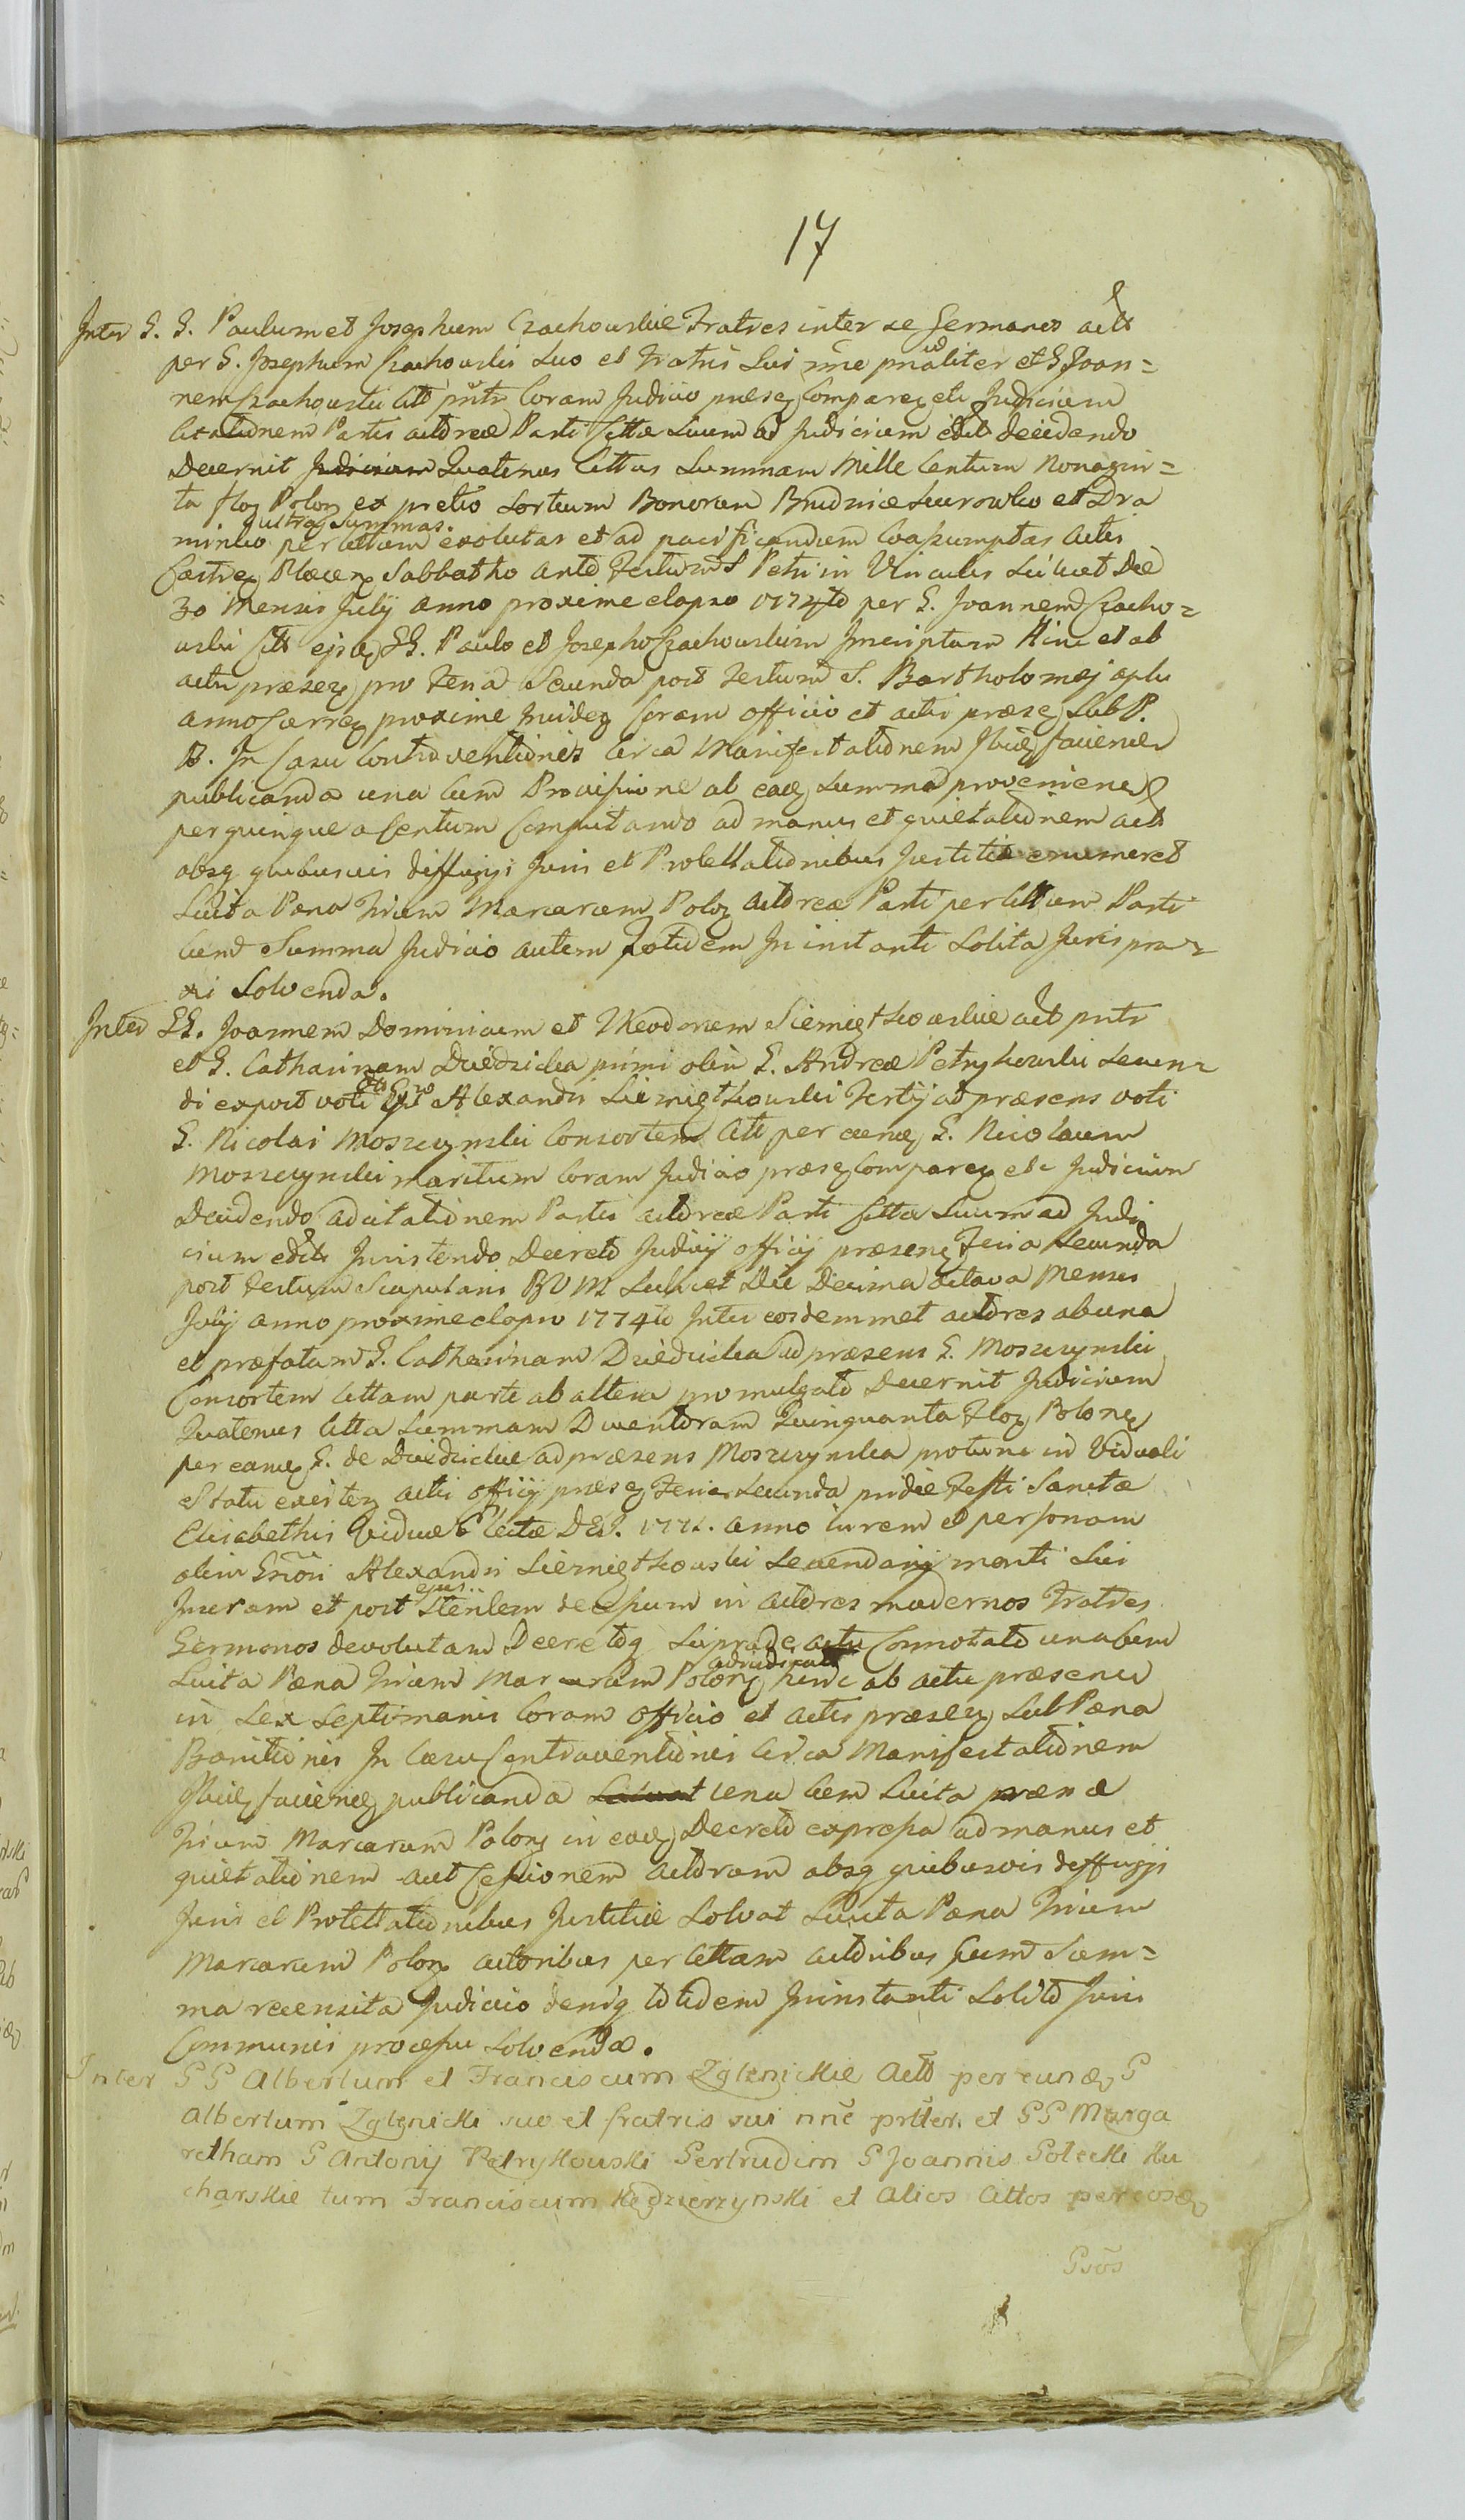 17
Inter G. G. Paulum et Josephum Czachowskie Fratres inter se Germanos act
per G. Josephum Czachowski suo et Fratris sui nne pnaliter et G Joan=
nem Czachowski Citt pntr Coram Judicio præseq Compareq etc Judicium
Citationem Partis actoreæ Parti Cittæ suum ad Judicium edit decidendo
Decernit Judicium Quatenus Cittus Summam Mille Centum Nonagin=
ta floq Poloq ex pretio Sortium Bonorum Brudnice Siurowko et Dra
minko per cittum exolutas et ad pacificandum Coassumptas Actis
quitraq summas.
Castreq Ploceq Sabbatho ante Festum S Petri in Vinculis scilicet Die
30 Mensis Julij Anno proxime elapso 1774to per G. Joannem Czacho=
wski Citt ejsdeq GG. Paulo et Josepho Czachowskim Inscriptam Hinc et ab
actu præseq pro Feria Secunda post Festum S. Bartholomæj aplu
anno Curreq proxime Coram officio et actis præseq sub P.
B. In Casu Contraventionis Circa Manifestationem
publicanda una Cum Provisione ab eadq summa provenien
per quinque a Centum Computando ad manus et quietationem act
absq quibusvis diffugijs Juris et Protestationibus Justitiæ enumeret
Luita Pæna Trium Marcarum Poloq Actoreæ Parti per Cittum Parti
cum Summa Judicio autem totidem In instanti Solita Juris pra=
xi Solvenda.
Inter GG. Joannem Dominicum et Theodorum Siemiętkowskie act pntr
et G. Catharinam Dziedzicka primi olim G. Andreæ Petrykowski Secun=
di expost voti Alexandri Siemiętkowski Tertij ad præsens voti
G. Nicolai Moszczynski Consortem Citt per eunq G. Nicolaum
Moszczynski maritum Coram Judicio præseq Compareq etc Judicium
Decidendo ad citationem Partis actoreæ Parti Cittæ suum ad Judi
cium edit Insistendo Decreto Judicij officij præsenq Feria Secunda
post Festum Scapularis BVM scilicet Die Decima octava Mensis
Julij anno proxime elapso 1774to Inter eosdemmet actores ab una
et præfatam G. Catharinam Dziedzicka ad præsens G. Moszczynski
Consortem Cittam parte ab altera promulgato Decernit Judicium
Quatenus Citta Summam Ducentorum Quinquanta Floq Poloneq
per eamq G. de Dziedzickie ad præsens Moszczynska protunc in Viduali
Statu existeq actis officij præseq Feria Secunda pridie Festi Sanctæ
Elisabethis Viduæ Electæ Dei. 177 . anno in rem et personam
olim Alexandri Siemiętkowski Secundarij mariti sui
Inscram et post ejus sterilem decessum in actores modernos Fratres
Germanos devolutam Decretoq supra de actu Connotato una Cum
Luita Pæna Trium Marcarum Poloneq adjudicat hinc ab actu præsenti
in Sex Septimanis Coram officio et actis præseq sub Pæna
Banitionis In Casu Contraventionis Circa Manifestationem
publicanda una Cum Luita pæna
Trium Marcarum Poloq in eodq Decreto expressa ad manus et
quietationem aut Cessionem actorum absq quibusvis diffugijs
Juris et Protestationibus Justitiæ Solvat Luita Pæna Trium
Marcarum Poloq actoribus per Cittam actoribus Cum Sum=
ma recensita Judicio deniq totidem In instanti Solito Juris
Communis processu Solvenda.
Inter GG Albertum et Franciscum Zglenickie Acto per eundq G
Albertum Zglenicki suo et fratris sui nne prtter, et GG Marga
retham G Antonij Petrykowski Gertrudim G Joannis Golecki Ku
charskie tum Franciscum Kędzierzynski et Alios Cittos per eosdq
Gsos